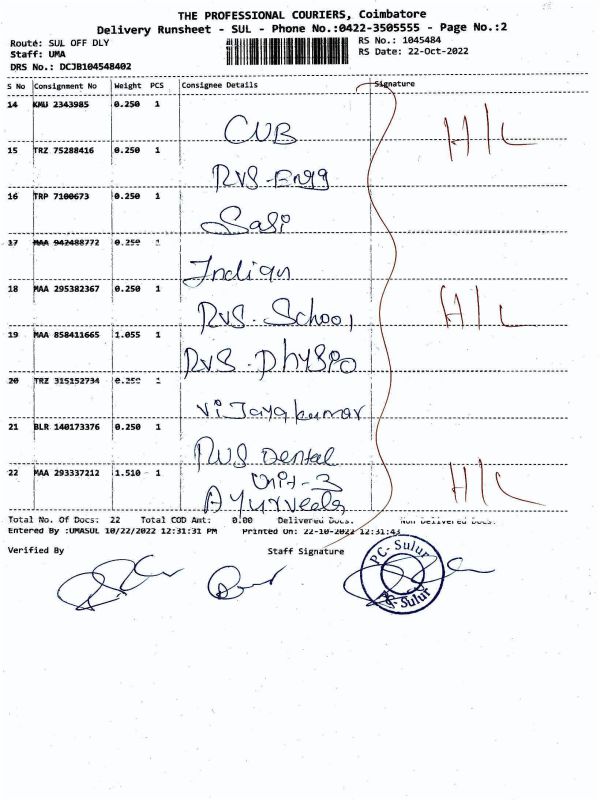 THE PROFESSIONAL COURIERS, Coimbatore
Delivery Runsheet - SUL - Phone No.:0422-3505555 - Page No.:2
Route: SUL OFF DLY RS No.: 1045484
Staff: UMA RS Date: 22-Oct-2022
DRS No.: DCJB104548402
S No Consignment No Weight PCS Consignee Details Signature
14 KMU 2343985 0.250 1
CUB H/L
15 TRZ 75288416 0.250 1
RVS-Engg
16 TRP 7100673 0.250 1
Sasi
17 MAA 942488772 0.250 1
Indian
18 MAA 295382367 0.250 1
RVS. School H/L
19 MAA 858411665 1.055 1
RVS. Physio
20 TRZ 315152734 0.250 1
Vijayakumar
21 BLR 140173376 0.250 1
RVS Dental
22 MAA 293337212 1.510 1
Unit-3 H/L
Ayurveda
Total No. Of Docs: 22 Total COD Amt: 0.00 Delivered Docs: Non Delivered Docs:
Entered By :UMASUL 10/22/2022 12:31:31 PM Printed On: 22-10-2022 12:31:43
Verified By Staff Signature
PC-Sulur
PC-Sulur